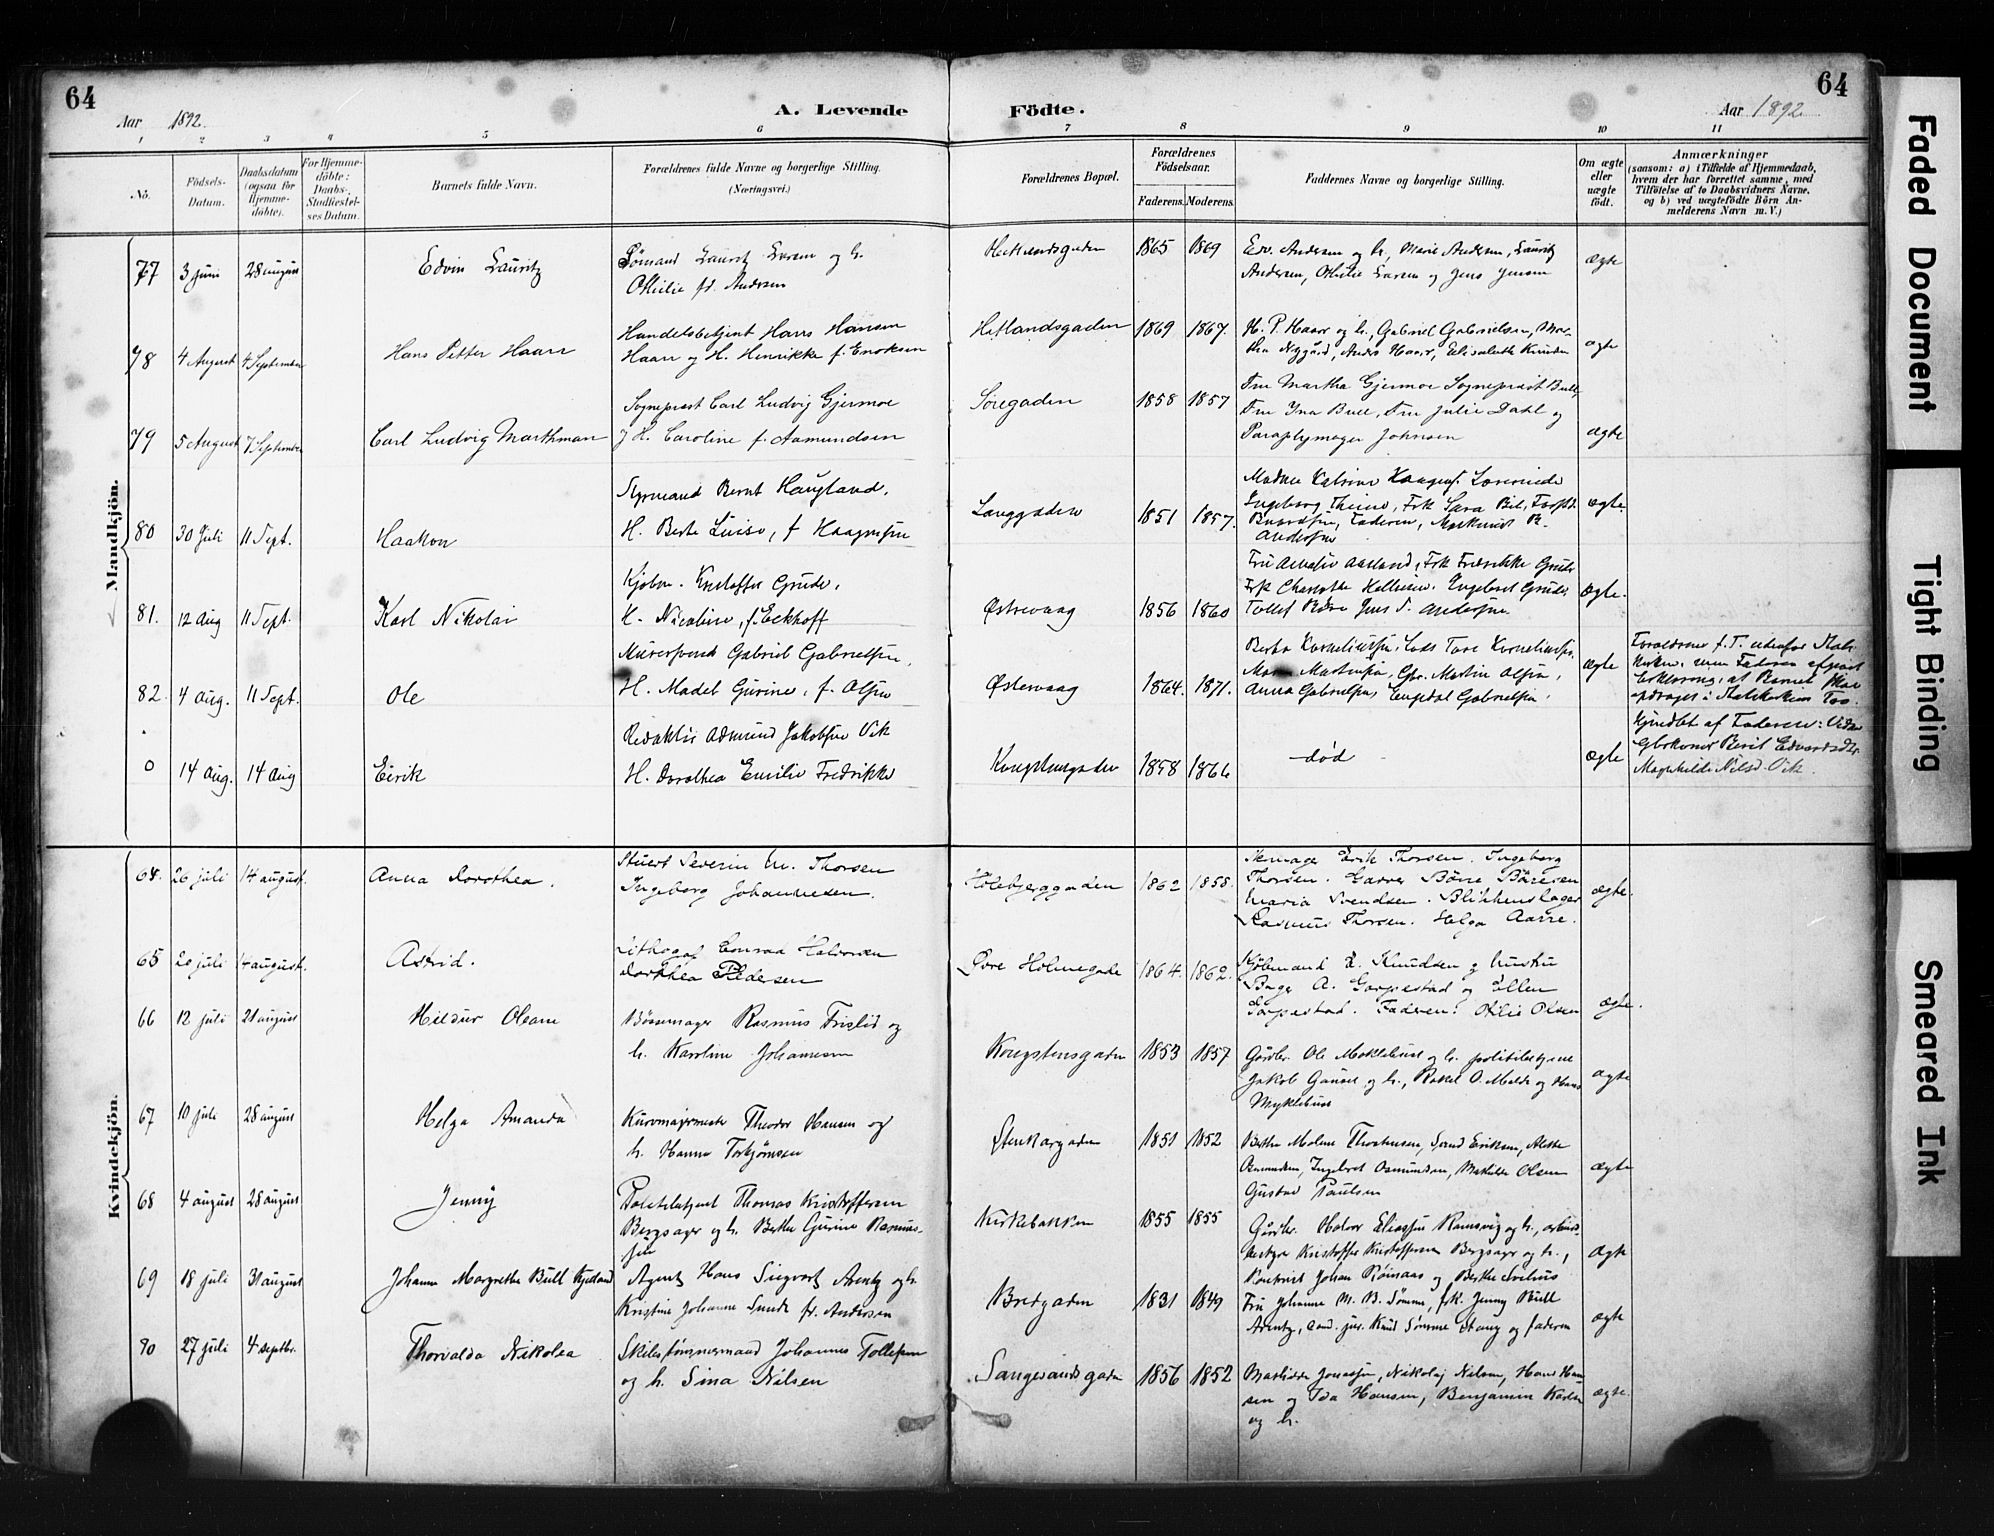 64
Aar 1892.
A. Levende
Födte.
Aar 1892
64
1 2 3 4 5 6 7 8 9 10 11
No.
Födsels-Datum.
Daabsdatum (ogsaa for Hjemme-döbte).
For Hjemme-döbte: Daabs-Stadfæstel-ses Datum.
Barnets fulde Navn.
Forældrenes fulde Navne og borgerlige Stilling. (Næringsvei.)
Forældrenes Bopæl.
Forældrenes Födselsaar.
Faderens. Moderens.
Faddernes Navne og borgerlige Stilling.
Om ægte eller uægte födt.
Anmærkninger
(saasom: a) i Tilfælde af Hjemmedaab,
hvem der har forrettet samme, med
Tilföielse af to Daabsvidners Navne,
og b) ved uægtefödte Börn An-
melderens Navn m. V.)
Mandkjön.
77 3 juni 28 august Edvin Lauritz
Sömand Lauritz Larsen og h.
Othilie fd. Andersen
Hetlandsgaden 1865 1869
Edv. Andersen og h., Marie Andersen, Lauritz
Andersen, Othilie Larsen og Jens Jensen
ægte
78 4 August 4 September Hans Petter Haarr
Handelsbetjent Hans Hansen
Haarr og H. Henrikke f. Enoksen
Hetlandsgaden 1869 1867.
H. P. Haarr og h., Gabriel Gabrielsen, Mar-
tha Nygård, Anders Haarr, Elisabeth Knudsen
ægte
79 5 August 7 September Carl Ludvig Marthman
Sogneprest Carl Ludvig Gjermoe
og H. Caroline f. Aamundsen
Søregaden 1858 1857
Fru Martha Gjermoe Sogneprest Bull,
Fru Ina Bull, Fru Julie Dahl og
Paraplymager Johnsen
ægte
80 30 Juli 11 Sept. Haakon
Styrmand Bernt Haugland,
H. Berte Luise, f. Haagensen
Langgaden 1851 1857.
Ingeborg Thime, Frk Sara
Faderen,
Andersen
ægte.
81. 12 Aug 11 Sept. Karl Nikolai
Kjøbm. Kristoffer Grude,
H. Nicoline, f. Eckhoff
Østrevaag 1856 1860
Fru Aasland, Frk Fredrikke Grude
Frk Charlotte Hellisen, Ingebret Grude
Jens T. Andersen.
ægte.
82. 4 aug. 11 Sept. Ole
Murersvend Gabriel Gabrielsen,
H. Madel Gurine, f. Olsen
Østervaag 1864. 1871.
Berta Korneliussen, Lods Tore Korneliussen,
Martinsen, Martin Olsen,
Anna Gabrielsen, Engdal Gabrielsen.
ægte
Forældrene f. T. udenfor Stats-
kirken, men Faderen afgivet
Erklæring, at Barnet skal
opdrages i Statskirkens Tro.
0 14 aug. 14 Aug Eirik
Redaktør Admund Jakobsen Vik
H. Dorothea Emilie Fredrikke
Kongsteensgaden 1858 1866
død
ægte
Hjmdbt af Faderen: Vidner
Gbrkone Berit Edvardsdtr.
Magnhilde Nilsd. Vik.
Kvindekjön.
64. 26 juli 14 august. Anna Dorothea.
Stuert Severin M. Thorsen
Ingeborg Johannesen.
Holebjerggaden 1862 1858.
Erik Thorsen. Ingeborg
Thorsen. Garver Børre Børresen
Maria Svendsen. Blikkenslager
Rasmus Thorsen. Helga Aarre.
ægte.
65 20 juli 14 august. Astrid.
Lithograf Conrad Halvorsen
Dorthea Pedersen
Øvre Holmegade 1864. 1862.
Kjøbmand L. Knudsen og hustru
Bager A. Garpestad og Ellen
Garpestad. Faderen. Otilie Olsen
ægte.
66 12 juli 21 august Hildur Oleane
Bøssemager Rasmus Tristid og
h. Karoline Johannesen
Kongsteensgaden 1853 1857
Gårdbr. Ole Moklebust og h. politibetjent
Jakob Gausel og h., Rakel O. Melde og Hans
Myklebust
ægte
67 10 juli 28 august Helga Amanda
Kurvmagermester Theodor Hansen og
h. Hanna Torbjørnsen
Stenkargaden 1851 1852
Berthe Malene Thorstensen, Svend Eriksen, Alette
Osmundsen, Ingebret Osmundsen, Mathilde Olsen
Gustav Paulsen
ægte
68 4 august 28 august Jenny
Politibetjent Thomas Kristoffersen
Bergsager og h. Berthe Gurine Rasmus-
sen
Kirkebakken 1855 1855
Gårdbr. Halvor Eliassen Ramsvig og h., arbeids-
bestyrer Kristoffer Kristoffersen Bergsager og h.,
Kontorist Johan Roinaas og Berthe Svihus
ægte
69 18 juli 31 august Johanne Margrethe Bull Kjelland
Agent Hans Siegvart Arentz og h.
Kristine Johanne Sunde fd. Andersen
Bredgaden 1831 1849
Fru Johanne M. B. Sømme, frk. Jenny Bull
Arentz, Cand. jur. Knud Sømme Stang og faderen
ægte
70 27 juli 4 septbr. Thorvalda Nikolea
Skibstømmermand Johannes Tollefsen
og h. Sina Nilsen
Sangesandsgaden 1856 1852
Mathilde Jonassen, Nikolaj Nilsen, Hans Han-
sen og Ida Hansen, Benjamin Karlsen
og h.
ægte.
Faded Document
Tight Binding
Smeared Ink